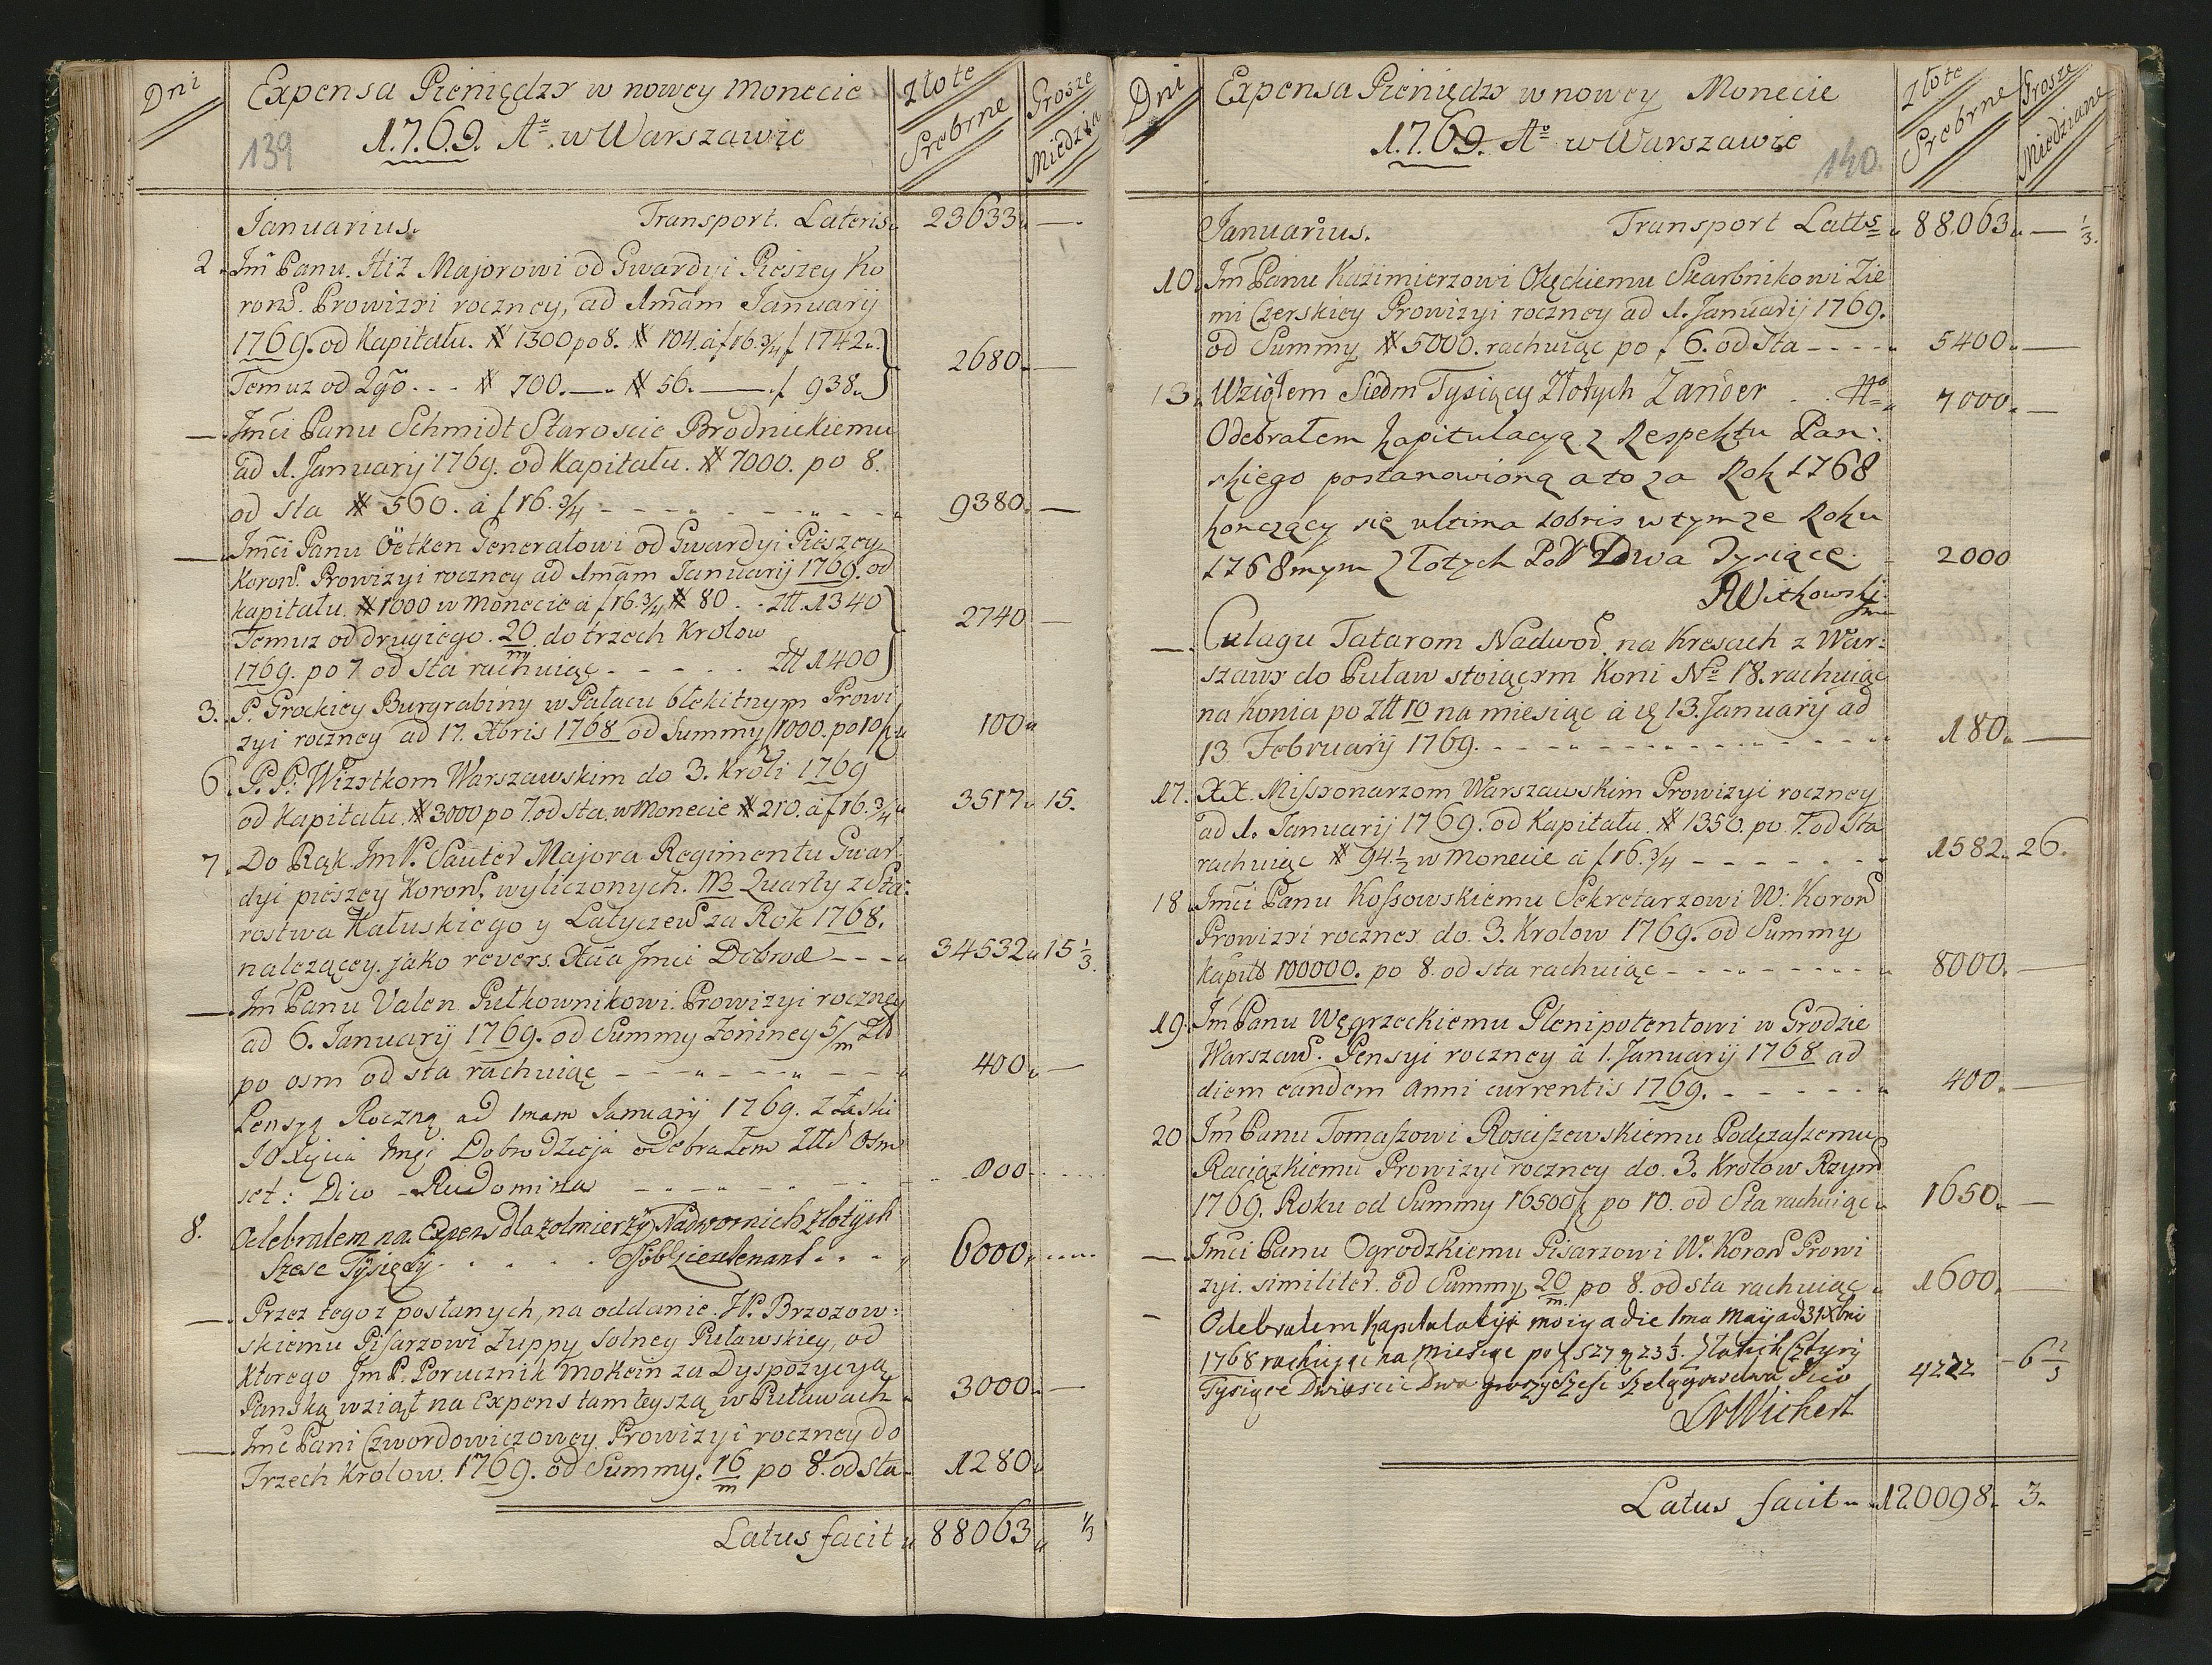 Dni
Expensa Pieniędzy w nowey Monecie
1.7.6.9. Aº w Warszawie
139
Złote Srebrne
Grosze Miedzia
Januarius. Transport. Lateris 23633 —
2. Jm̃ Panu Hiż Majorowi od Gwardyi Pieszey Ko
ronñ. Prowizyi roczney, ad 1mam Januarij
1769. od Kapitału. # 1300 po 8. # 104. a f 16.¾ f 1742.
Temuz od 2go - - - # 700. — # 56. — f 938. 2680. —
— Jmći Panu Schmidt Staroscie Brodnickiemu
ad 1. Januarij 1769. od Kapitału. # 7000. po 8.
od sta # 560. a f 16.¾ - - - - - - 9380. —
— Jmći Panu Öetken Generałowi od Gwardyi Pieszey
Koronñ. Prowizyi roczney ad 1mam Januarij 1769. od
kapitału # 1000 w Monecie a f 16.¾ # 80. . Złł. 1340
Temuz od drugiego. 20/m do trzech Krolow 2740 —
1769. po 7 od sta rachuiąc - - - - Złł 1400
3. P. Grockiey Burgrabiny w Pałacu błękitnym Prowi
zyi roczney ad 17. Xbris 1768 od Summy 1000. po 10 100
6. P. P. Wizytkom Warszawskim do 3. Kroli 1769
od Kapitału. # 3000 po 7. od sta. w Monecie # 210. a f 16.¾ 3517 15.
7. Do Rąk Jm P. Sauter Majora Regimentu Gwar
dyi pieszey Koronñ. wyliczonych. 1/3 Quarty z Sta:
rostwa Kałuskiego y Latyczewñ za Rok 1768.
należącey. jako revers. Xcia Jmci Dobrod - - - 34532 15 1/3.
— Jm̃ Panu Valen Pułkownikowi Prowizyi roczney
ad 6. Januarij 1769. od Summy Zoniney 5/m Złł
po osm od sta rachuiąc - - - - - - 400. —
Pensyą Roczną ad 1mam Januarij 1769. z łaski
JO Xięcia Jmći Dobrodzieja odebrałem Złł Osm
set: Dico - Rudomina - - - - - 800. . . .
8. Odebralem na Expens dla zolnierzy Nadwornich złotych
Szesc Tysięcy . . . . . 6000. . . . .
— Przez tegoz posłanych, na oddanie JP. Brzozow:
skiemu Pisarzowi Zuppy Solney Puławskiey, od
ktorego Jm P. Porucznik Mokein za Dyspozycyą
Panską wziął na Expens tamteyszą w Puławach 3000. —
— Jmć Pani Czwordowiczowey Prowizyi roczney do
Trzech Krolow. 1769. od Summy. 16/m po 8. od sta 1280
Latus facit 88063 1/3
Dni
Expensa Pieniędzy w nowey Monecie
1.7.69. Aº w Warszawie
140.
Złote Srebrne
Grosze Miedziane
Januarius. Transport Latts 88.063. — 1/3.
10. Jm̃ Panu Kazimierzowi Okęckiemu Skarbnikowi Zie
mi Czerskiey Prowizyi roczney ad 1. Januarij 1769.
od Summy # 5000. rachuiąc po f 6. od sta - - - - 5400. —
13. Wziąłem Siedm Tysięcy Złotych Zander . . 7000. —
Odebrałem kapitulacyą z Respektu Pan:
skiego postanowioną a to za Rok 1768
kończący się ultima Xobris w tymze Roku
1768mym Złotych Pol Dwa Tysiące. 2000
AWitkowski
— Culagu Tatarom Nadwor. na Kresach z War:
szawy do Puław stoiącym Koni Nº 18. rachuiąc
na konia po Złł 10 na miesiąc a 13. January ad
13 February 1769. - - - - - - - 180. —
17. XX. Missyonarzom Warszawskim Prowizyi roczney
ad 1. Januarij 1769. od Kapitału. # 1350. po 7. od sta
rachuiąc # 94.½ w Monecie a f 16.¾ - - - - - 1582. 26.
18. Jmći Panu Kossowskiemu Sekretarzowi W: Koronñ
Prowizyi roczney do 3. Krolow 1769. od Summy
Kapitł 100000. po 8. od sta rachuiąc - - - - - 8000. —
19. Jm̃ Panu Węgrzeckiemu Plenipotentowi w Grodzie
Warszawñ. Pensyi roczney a 1. Januarij 1768 ad
diem eandem Anni currentis 1769. - - - - - 400. —
20. Jm̃ Panu Tomaszowi Rosciszewskiemu Podczaszemu
Raciązkiemu Prowizyi roczney do 3. Krolow Rzymñ
1769. Roku od Summy 16500 f po 10. od Sta rachuiąc 1650. —
— Jmći Panu Ogrodzkiemu Pisarzowi W. Koronñ Prowi
zyi. similiter. od Summy 20/m po 8. od sta rachuiąc 1600. —
— Odebralem Kapitulatiji moiy a die 1ma Maij ad 31 Xbris
1768 rachując na Miesiąc po f 527 g 23⅓. Złotich Cztyry
Tysiące Dwiescie Dwa groszy szesc szelągow dwa dico 4222 6 2/3
LvWichert
Latus facit 120098. 3.